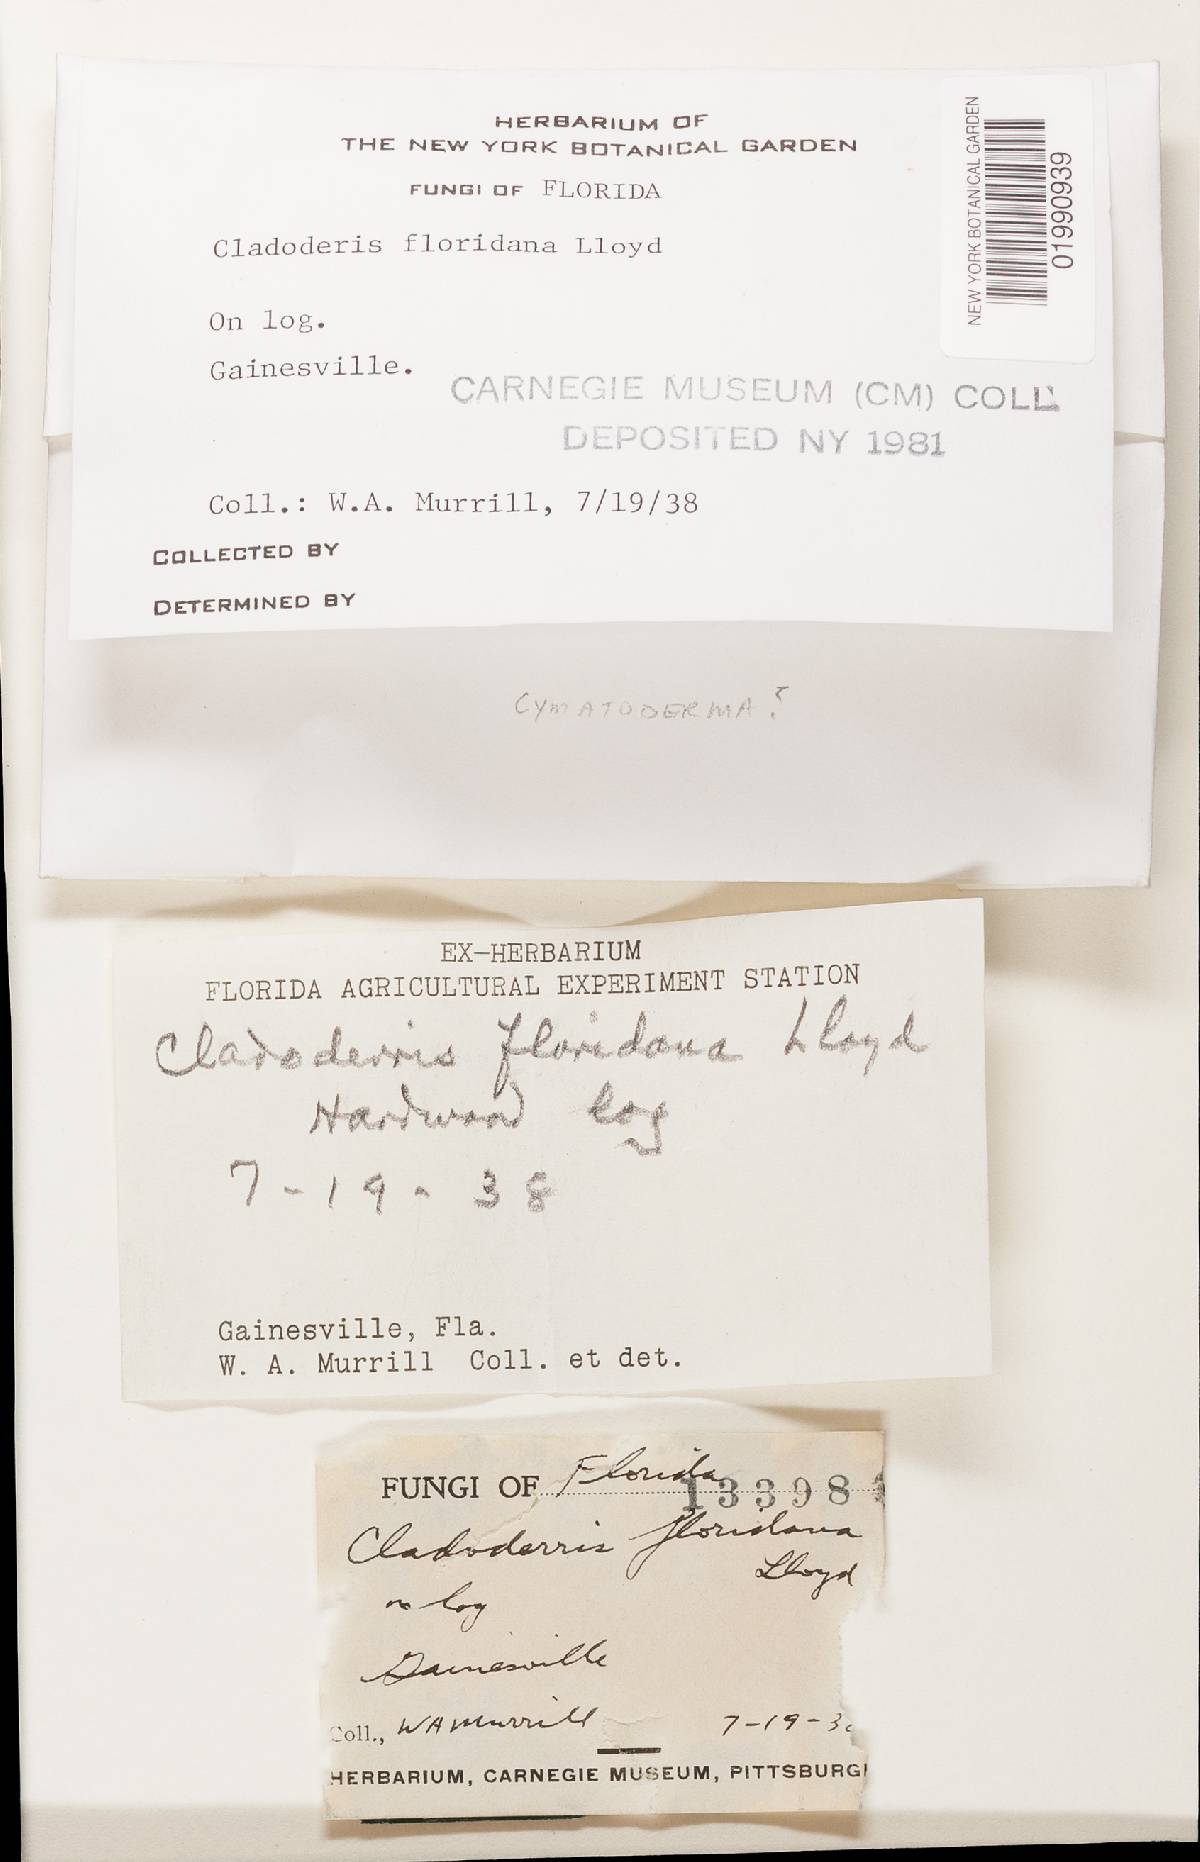 HERBARIUM OF
THE NEW YORK BOTANICAL GARDEN
FUNGI OF FLORIDA
Cladoderis floridana Lloyd
On log.
Gainesville.
CARNEGIE MUSEUM (CM) COLL.
DEPOSITED NY 1981
Coll.: W.A. Murrill, 7/19/38
COLLECTED BY
DETERMINED BY
NEW YORK BOTANICAL GARDEN
01990939
CYMATODERMA?
EX-HERBARIUM
FLORIDA AGRICULTURAL EXPERIMENT STATION
Cladoderris floridana Lloyd
Hardwood log
7-19-38
Gainesville, Fla.
W. A. Murrill Coll. et det.
FUNGI OF Florida
13398
Cladoderris floridana
Lloyd
on log
Gainesville
Coll., WAMurrill 7-19-3
HERBARIUM, CARNEGIE MUSEUM, PITTSBURG